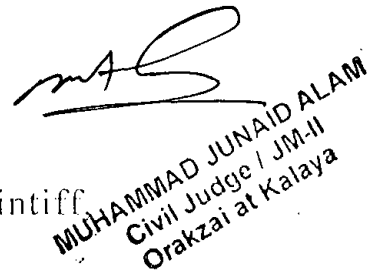 intiff
MUHAMMAD JUNAID ALAM
Civil Judge / JM-II
Orakzai at Kalaya